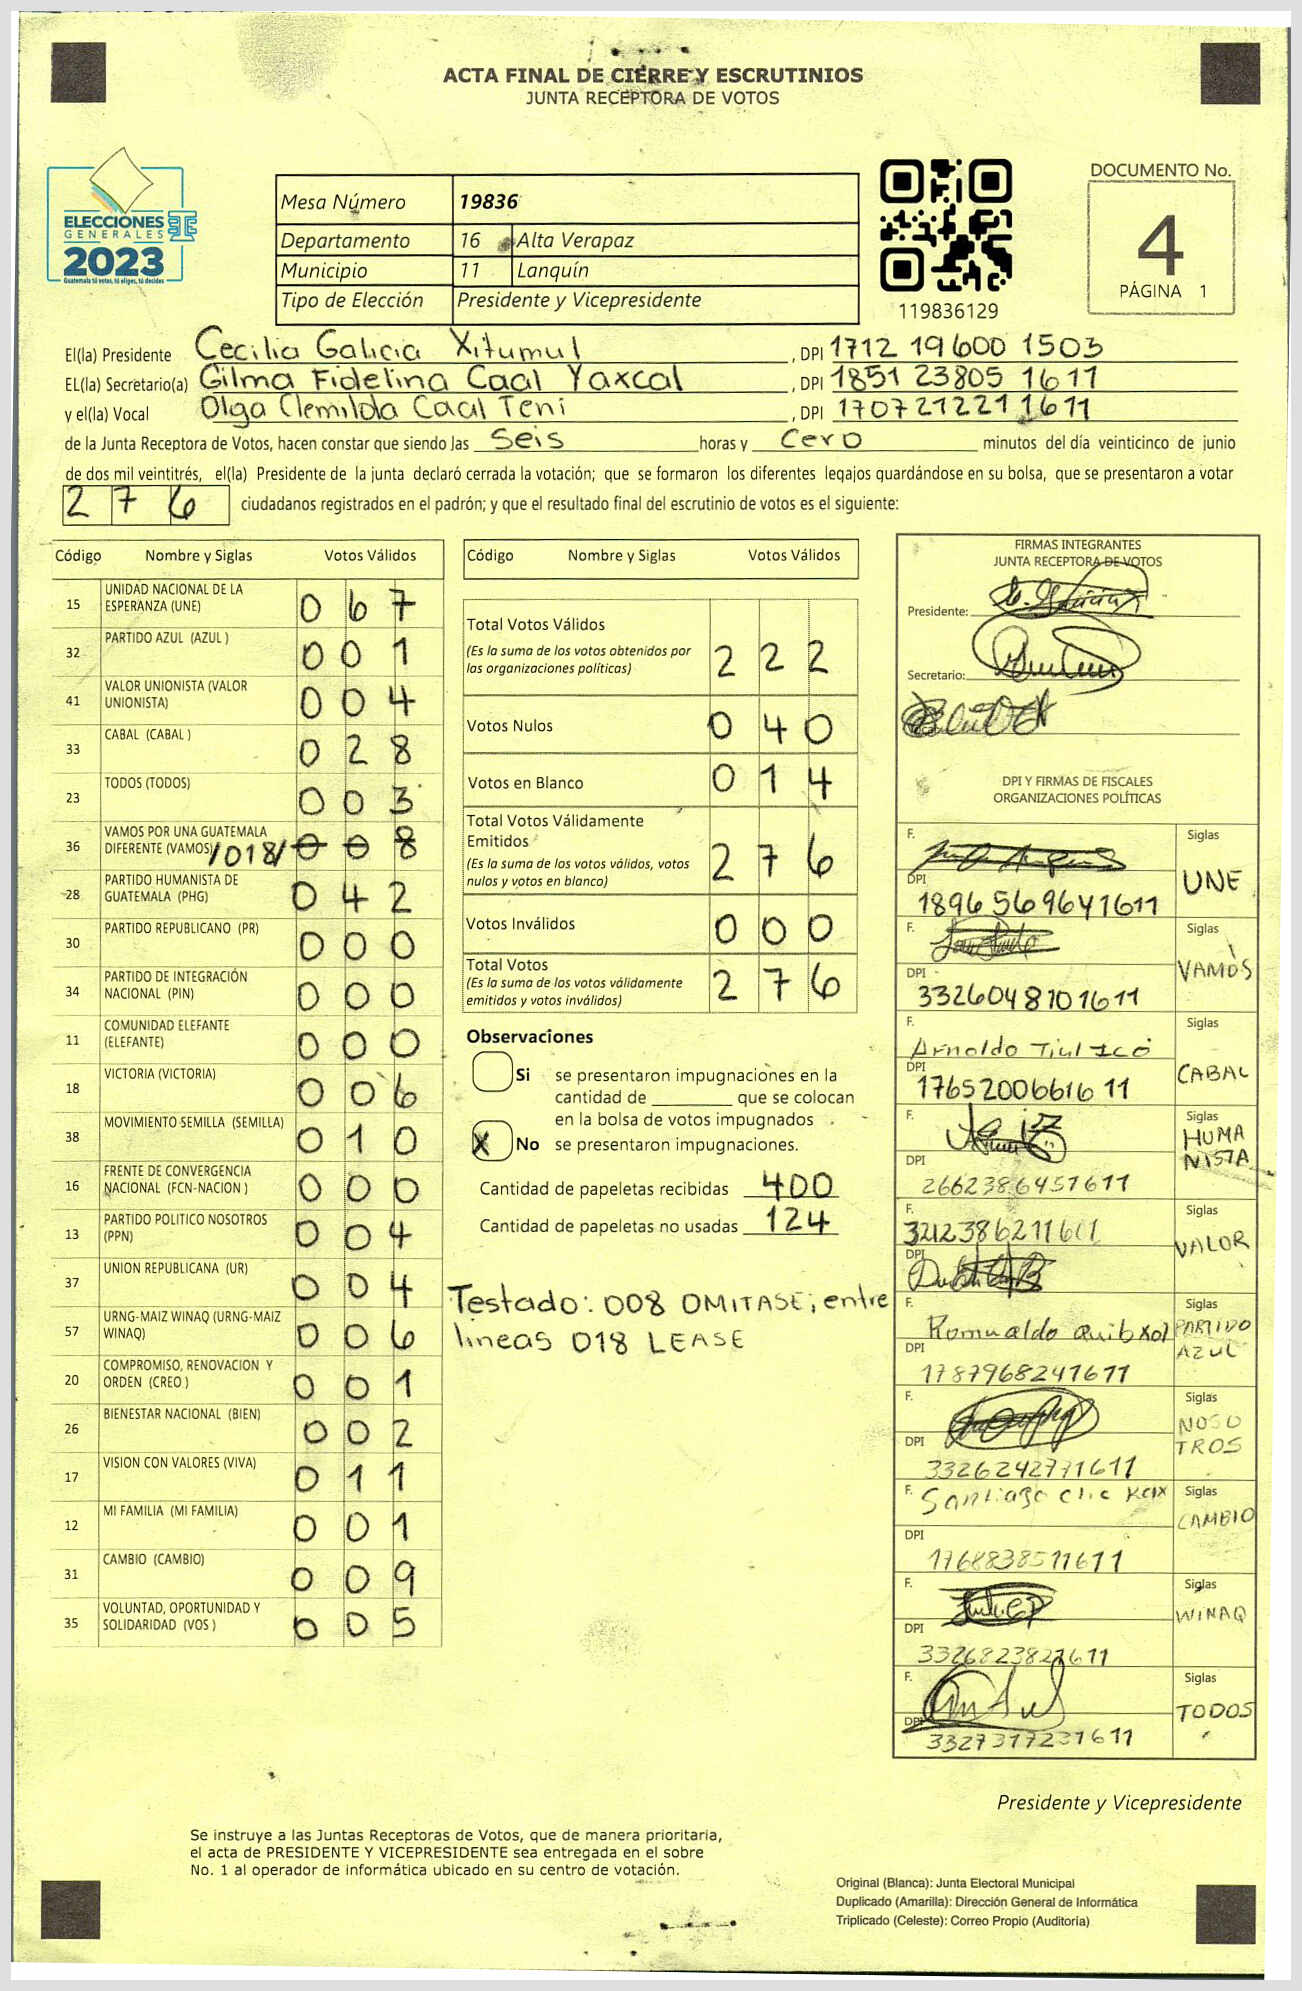 ACTA FINAL DE CIERRE Y ESCRUTINIOS
JUNTA RECEPTORA DE VOTOS
ELECCIONES
GENERALES
2023
Guatemala tú votas, tú eliges, tú decides
Mesa Número 19836
Departamento 16 Alta Verapaz
Municipio 11 Lanquín
Tipo de Elección Presidente y Vicepresidente
119836129
DOCUMENTO No.
4
PÁGINA 1
El(la) Presidente Cecilia Galicia Xitumul, DPI 1712 19600 1503
EL(la) Secretario(a) Gilma Fidelina Caal Yaxcal, DPI 1851 23805 1611
y el(la) Vocal Olga Clemilda Caal Teni, DPI 1707212211611
de la Junta Receptora de Votos, hacen constar que siendo las Seis horas y Cero minutos del día veinticinco de junio
de dos mil veintitrés, el(la) Presidente de la junta declaró cerrada la votación; que se formaron los diferentes legajos guardándose en su bolsa, que se presentaron a votar
276 ciudadanos registrados en el padrón; y que el resultado final del escrutinio de votos es el siguiente:
Código Nombre y Siglas Votos Válidos
15 UNIDAD NACIONAL DE LA
ESPERANZA (UNE) 067
32 PARTIDO AZUL (AZUL ) 001
41 VALOR UNIONISTA (VALOR
UNIONISTA) 004
33 CABAL (CABAL ) 028
23 TODOS (TODOS) 003
36 VAMOS POR UNA GUATEMALA
DIFERENTE (VAMOS) /018/ 008
28 PARTIDO HUMANISTA DE
GUATEMALA (PHG) 042
30 PARTIDO REPUBLICANO (PR) 000
34 PARTIDO DE INTEGRACIÓN
NACIONAL (PIN) 000
11 COMUNIDAD ELEFANTE
(ELEFANTE) 000
18 VICTORIA (VICTORIA) 006
38 MOVIMIENTO SEMILLA (SEMILLA) 010
16 FRENTE DE CONVERGENCIA
NACIONAL (FCN-NACION ) 000
13 PARTIDO POLITICO NOSOTROS
(PPN) 004
37 UNION REPUBLICANA (UR) 004
57 URNG-MAIZ WINAQ (URNG-MAIZ
WINAQ) 006
20 COMPROMISO, RENOVACION Y
ORDEN (CREO ) 001
26 BIENESTAR NACIONAL (BIEN) 002
17 VISION CON VALORES (VIVA) 011
12 MI FAMILIA (MI FAMILIA) 001
31 CAMBIO (CAMBIO) 009
35 VOLUNTAD, OPORTUNIDAD Y
SOLIDARIDAD (VOS ) 005
Código Nombre y Siglas Votos Válidos
Total Votos Válidos
(Es la suma de los votos obtenidos por
las organizaciones políticas) 222
Votos Nulos 040
Votos en Blanco 014
Total Votos Válidamente
Emitidos
(Es la suma de los votos válidos, votos
nulos y votos en blanco) 276
Votos Inválidos 000
Total Votos
(Es la suma de los votos válidamente
emitidos y votos inválidos) 276
Observaciones
Si se presentaron impugnaciones en la
cantidad de ________ que se colocan
en la bolsa de votos impugnados
X No se presentaron impugnaciones.
Cantidad de papeletas recibidas 400
Cantidad de papeletas no usadas 124
Testado: 008 OMITASE; entre
lineas 018 LEASE
FIRMAS INTEGRANTES
JUNTA RECEPTORA DE VOTOS
Presidente:
Secretario:
DPI Y FIRMAS DE FISCALES
ORGANIZACIONES POLÍTICAS
F. Siglas
DPI UNE
1896569641611
F. Siglas
DPI VAMOS
3326048101611
F. Siglas
Arnoldo Tiul Icó
DPI CABAL
1765200661611
F. Siglas
HUMA
DPI NISTA
2662386451611
F. Siglas
3212386211601
DPI VALOR
F. Siglas
Romualdo Quib Xol PARTIDO
DPI AZUL
1787968241611
F. Siglas
NOSO
DPI TROS
3326242771611
F. Siglas
Santiago Clic
DPI CAMBIO
1768838511611
F. Siglas
DPI WINAQ
3326823821611
F. Siglas
DPI TODOS
3327317231611
Presidente y Vicepresidente
Se instruye a las Juntas Receptoras de Votos, que de manera prioritaria,
el acta de PRESIDENTE Y VICEPRESIDENTE sea entregada en el sobre
No. 1 al operador de informática ubicado en su centro de votación.
Original (Blanca): Junta Electoral Municipal
Duplicado (Amarilla): Dirección General de Informática
Triplicado (Celeste): Correo Propio (Auditoría)